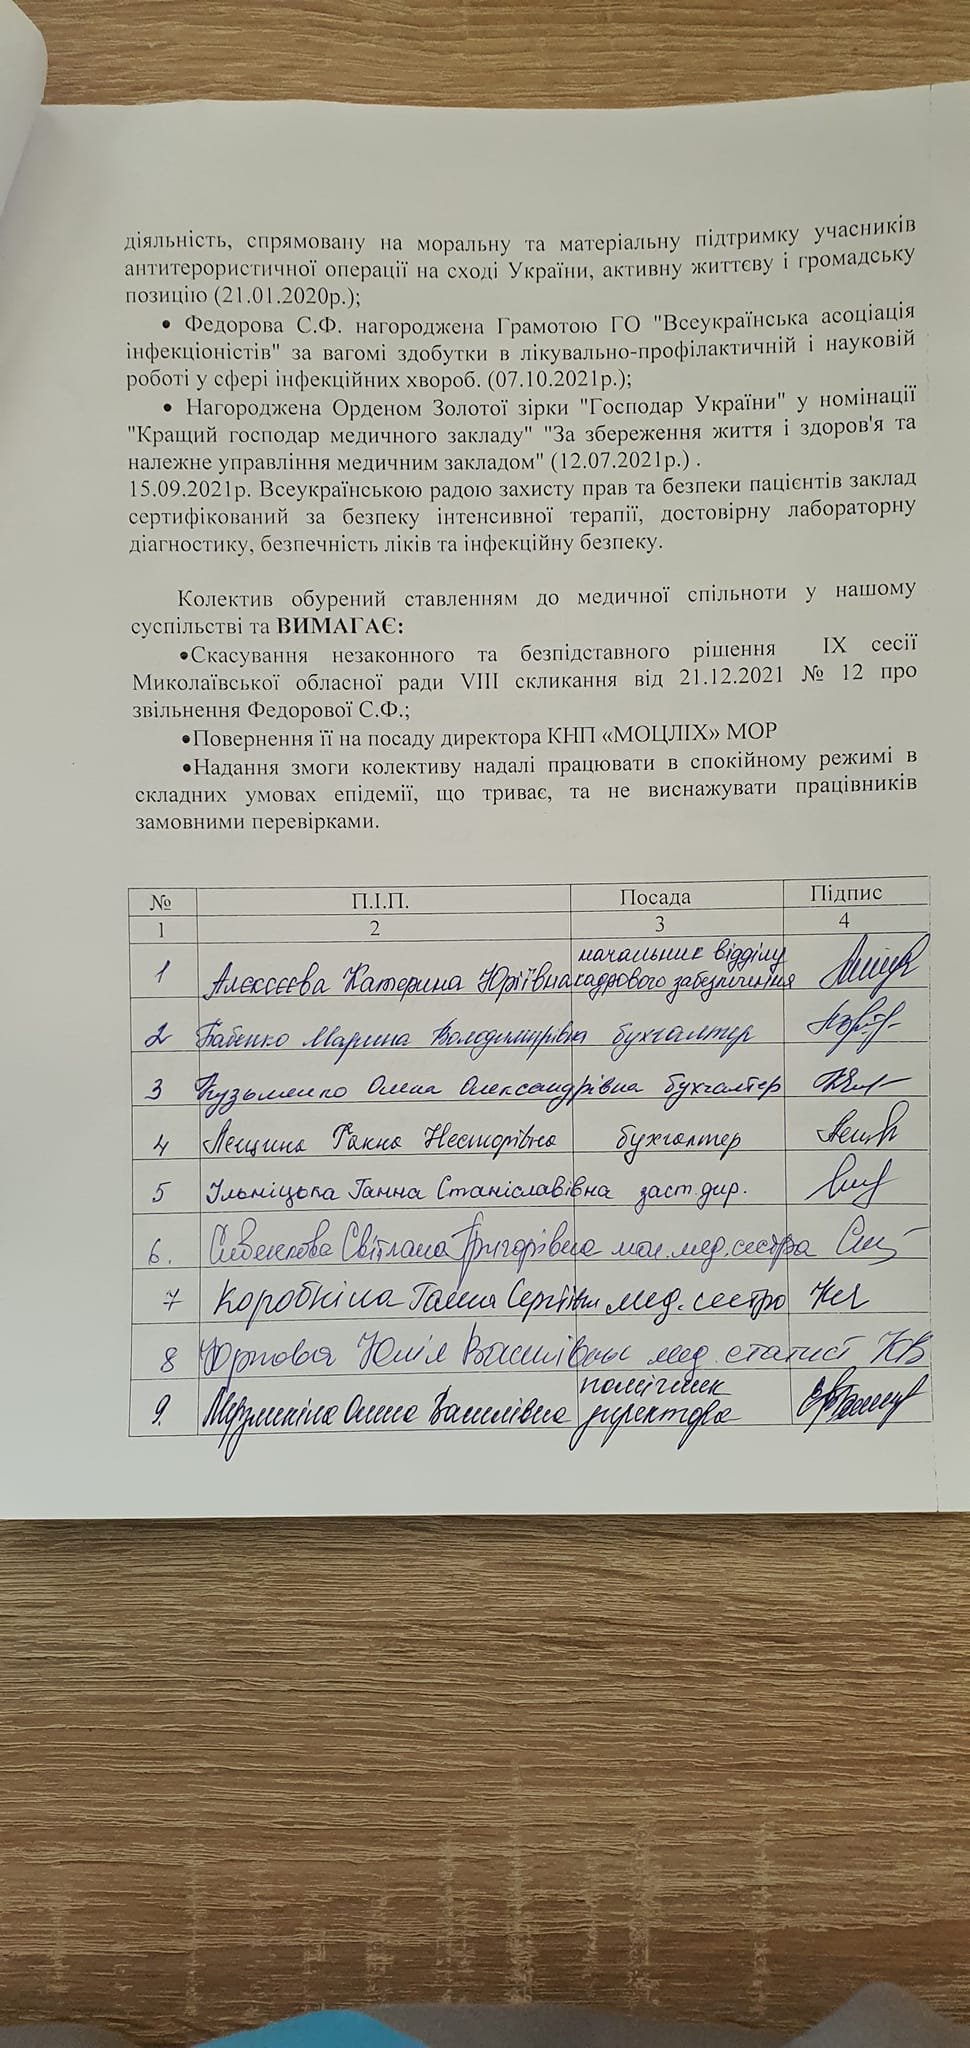 діяльність, спрямовану на моральну та матеріальну підтримку учасників
антитерористичної операції на сході України, активну життєву і громадську
позицію (21.01.2020р.);
• Федорова С.Ф. нагороджена Грамотою ГО "Всеукраїнська асоціація
інфекціоністів" за вагомі здобутки в лікувально-профілактичній і науковій
роботі у сфері інфекційних хвороб. (07.10.2021р.);
• Нагороджена Орденом Золотої зірки "Господар України" у номінації
"Кращий господар медичного закладу" "За збереження життя і здоров'я та
належне управління медичним закладом" (12.07.2021р.) .
15.09.2021р. Всеукраїнською радою захисту прав та безпеки пацієнтів заклад
сертифікований за безпеку інтенсивної терапії, достовірну лабораторну
діагностику, безпечність ліків та інфекційну безпеку.
Колектив обурений ставленням до медичної спільноти у нашому
суспільстві та ВИМАГАЄ:
•Скасування незаконного та безпідставного рішення ІХ сесії
Миколаївської обласної ради VIII скликання від 21.12.2021 № 12 про
звільнення Федорової С.Ф.;
•Повернення її на посаду директора КНП «МОЦЛІХ» МОР
•Надання змоги колективу надалі працювати в спокійному режимі в
складних умовах епідемії, що триває, та не виснажувати працівників
замовними перевірками.
№ П.І.П. Посада Підпис
1 2 3 4
1 Алєксєєва Катерина Юріївна начальник відділу кадрового забезпечення
2 Бабенко Марина Володимирівна бухгалтер
3 Кузьменко Олена Олександрівна бухгалтер
4 Лещина Ганна Несторівна бухгалтер
5 Ільніцька Ганна Станіславівна заст. дир.
6. Світлана Григорівна мед. сестра
7 Коробкіна Ганна Сергіївна мед. сестра
8 Юлія Василівна мед. статист
9. Олена Василівна помічник директора